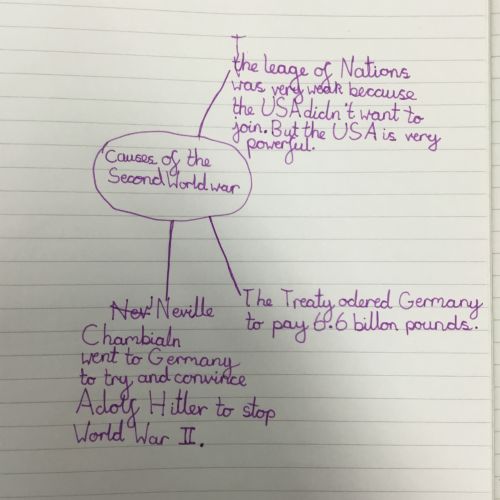 the leage of Nations
was very weak because
the USA didn't want to
join. But the USA is very
powerful.
Causes of the
Second World war
The Treaty odered Germany
to pay 6.6 billon pounds.
Nev Neville
Chambialn
went to Germany
to try and convince
Adolf Hitler to stop
World War II.